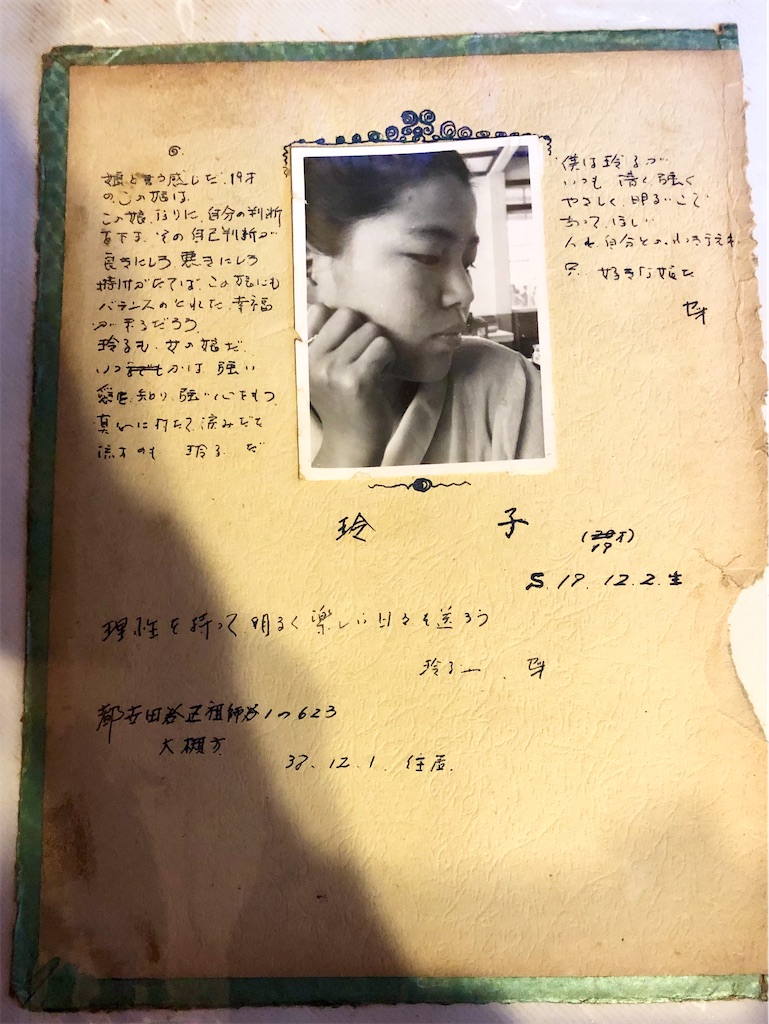 娘と言う感じだ、19才
のこの娘は、
この娘、なりに、自分の判断
言下す、その自己判断が
良きにしろ 悪きにしろ
時けがたてば、この娘にも
バランスのとれた、幸福
が来るだろう
玲子も、女の娘だ、
いつまでもかは 強い
愛を、知り、強い心をもつ、
真いに打たて、涙を
流すのも 玲子 だ
僕は玲子が
いつも 清く、強く
やさしく、明るいこで
あって、ほしい
好きな娘だ
玲 子
(20才)
19
S. 19. 12. 2. 生
理性を持って、明るく楽しい日々を送ろう
玲子
都世田谷区祖師谷1の623
大棚方
38. 12. 1. 住居.